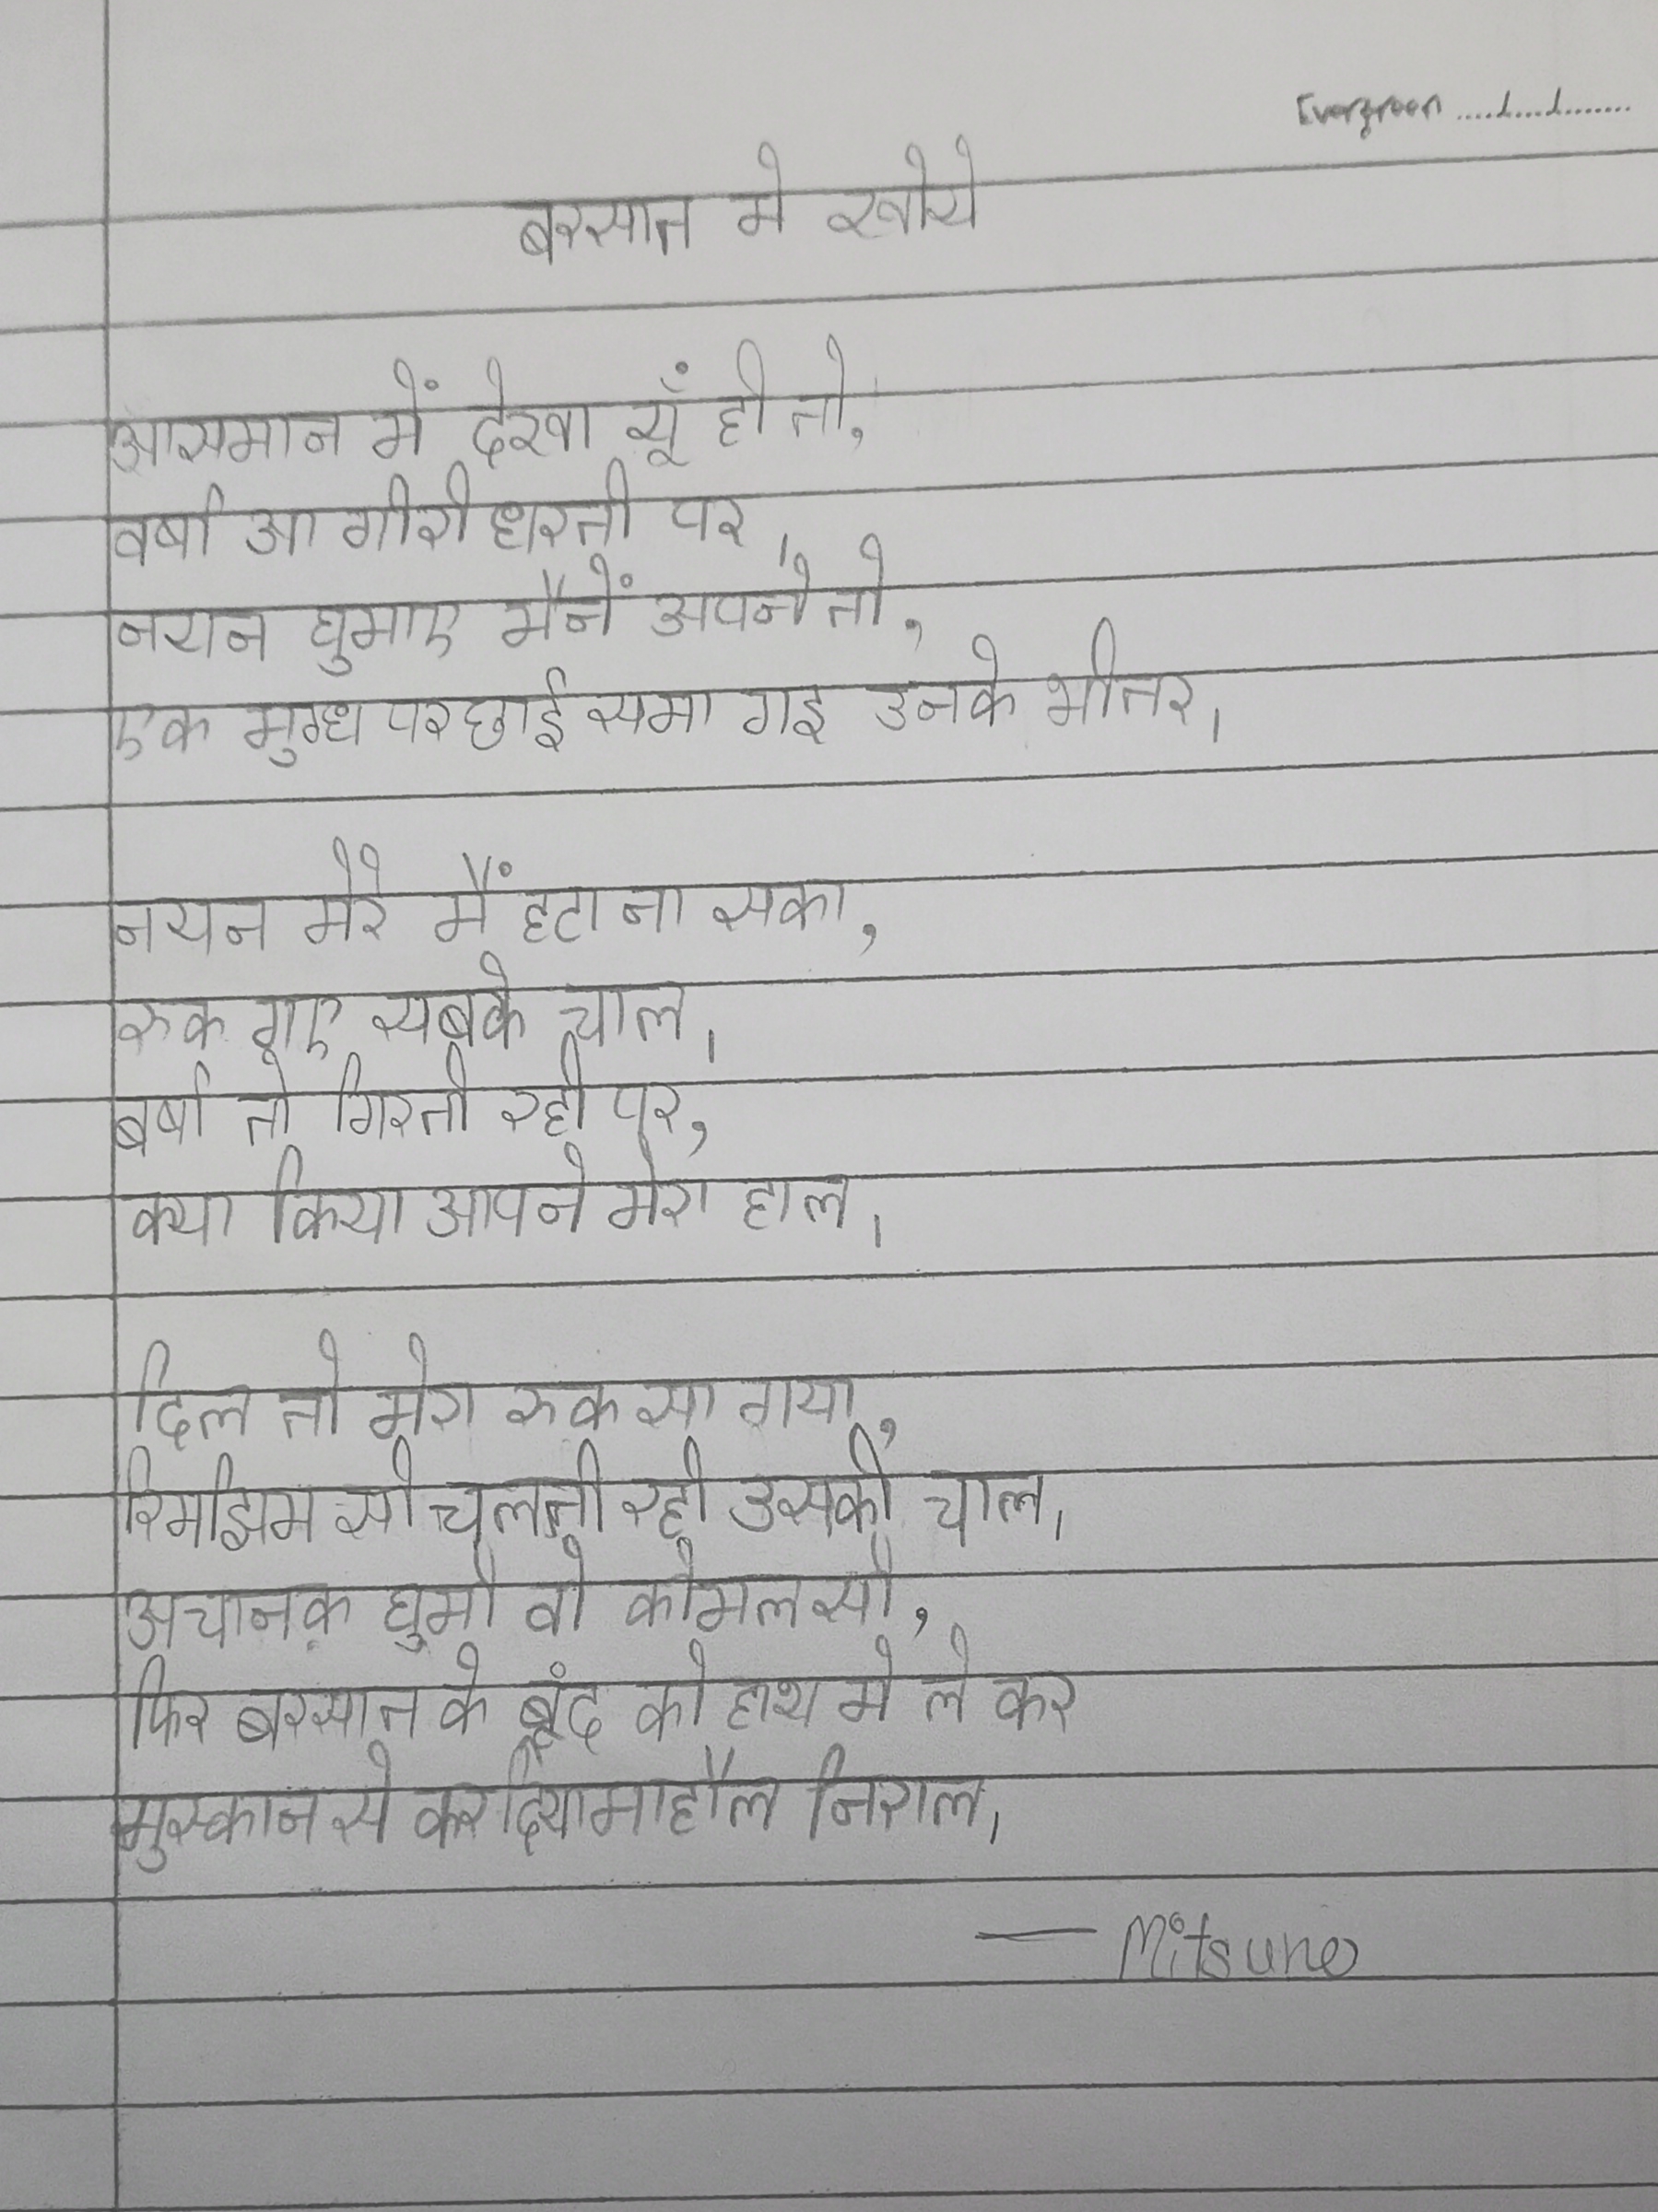 Evergreen ...../...../.......
बरसात मे खोये
आसमान में देखा यूँ ही तो,
वर्षा आ गीरी धरती पर।
नयन घुमाए मैनें अपने तो,
एक मुग्ध परछाई समा गइ उनके भीतर।
नयन मेरे मैं हटा ना सका,
रुक गए सबके चाल।
बर्षा तो गिरती रही पर,
क्या किया आपने मेरा हाल।
दिल तो मेरा रुक सा गया,
रिमझिम सी चलती रही उसकी चाल।
अचानक घुमी वो कोमल सी,
फिर बरसात के बूंद को हाथ मे ले कर
मुस्कान से कर दिया माहौल निराल।
— Mitsune